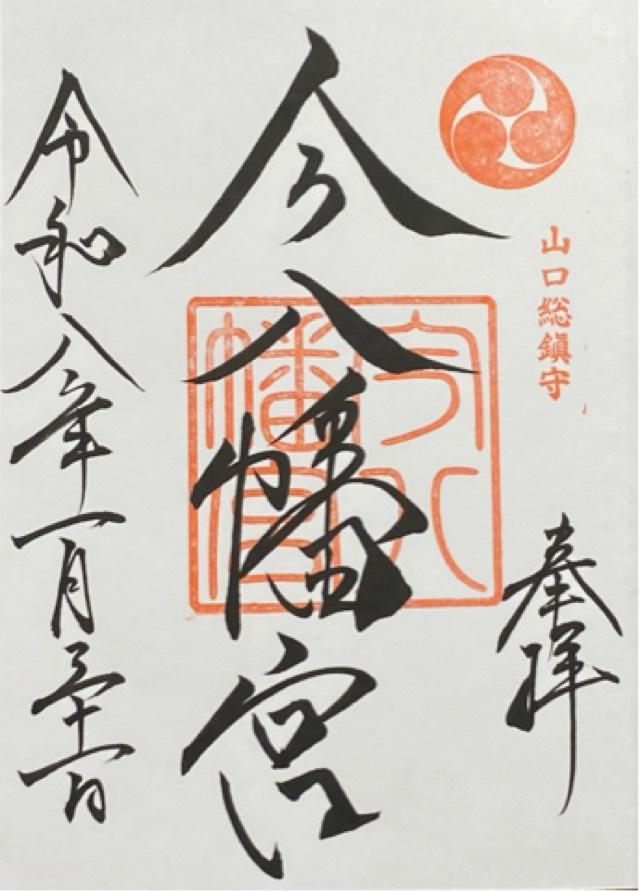 山口総鎮守
奉拝
今八幡宮
今八幡宮
令和八年一月三十一日